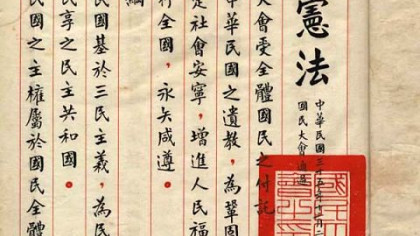 憲法
中華民國三十五年十二月二
國民大會通過
大會受全體國民之付託
中華民國之遺教，為鞏固
定社會安寧，增進人民福
行全國，永矢咸遵。
綱
民國基於三民主義，為民
民享之民主共和國。
民國之主權屬於國民全體